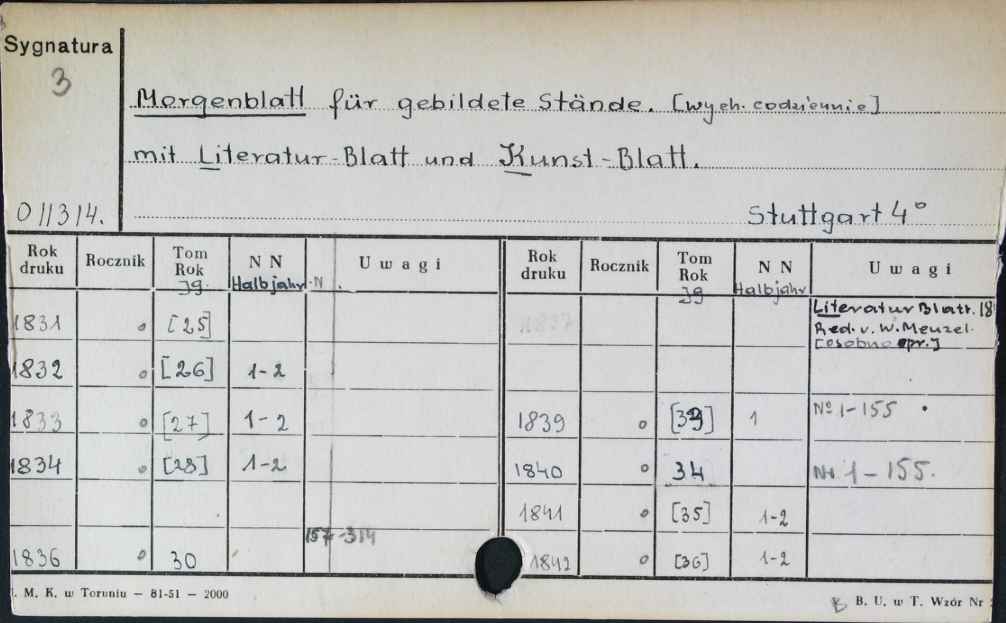 Sygnatura
3
Morgenblatt für gebildete Stände. [wych. codziennie]
mit Literatur-Blatt und Kunst-Blatt.
011314.
Stuttgart 4°
Rok druku Rocznik Tom Rok Jg. N N Halbjahr -N. Uwagi Rok druku Rocznik Tom Rok Jg N N Halbjahr Uwagi
Literatur Blatt. 18
Red. v. W. Menzel.
[osobno opr.]
1831 o [25]
1832 o [26] 1-2
1833 o [27] 1-2 1839 o [33] 1 No 1-155
1834 o [28] 1-2 1840 o 34 Nr 1-155.
1841 o [35] 1-2
157-314
1836 o 30 1842 o [36] 1-2
. M. K. w Toruniu — 81-51 — 2000
B. U. w T. Wzór Nr